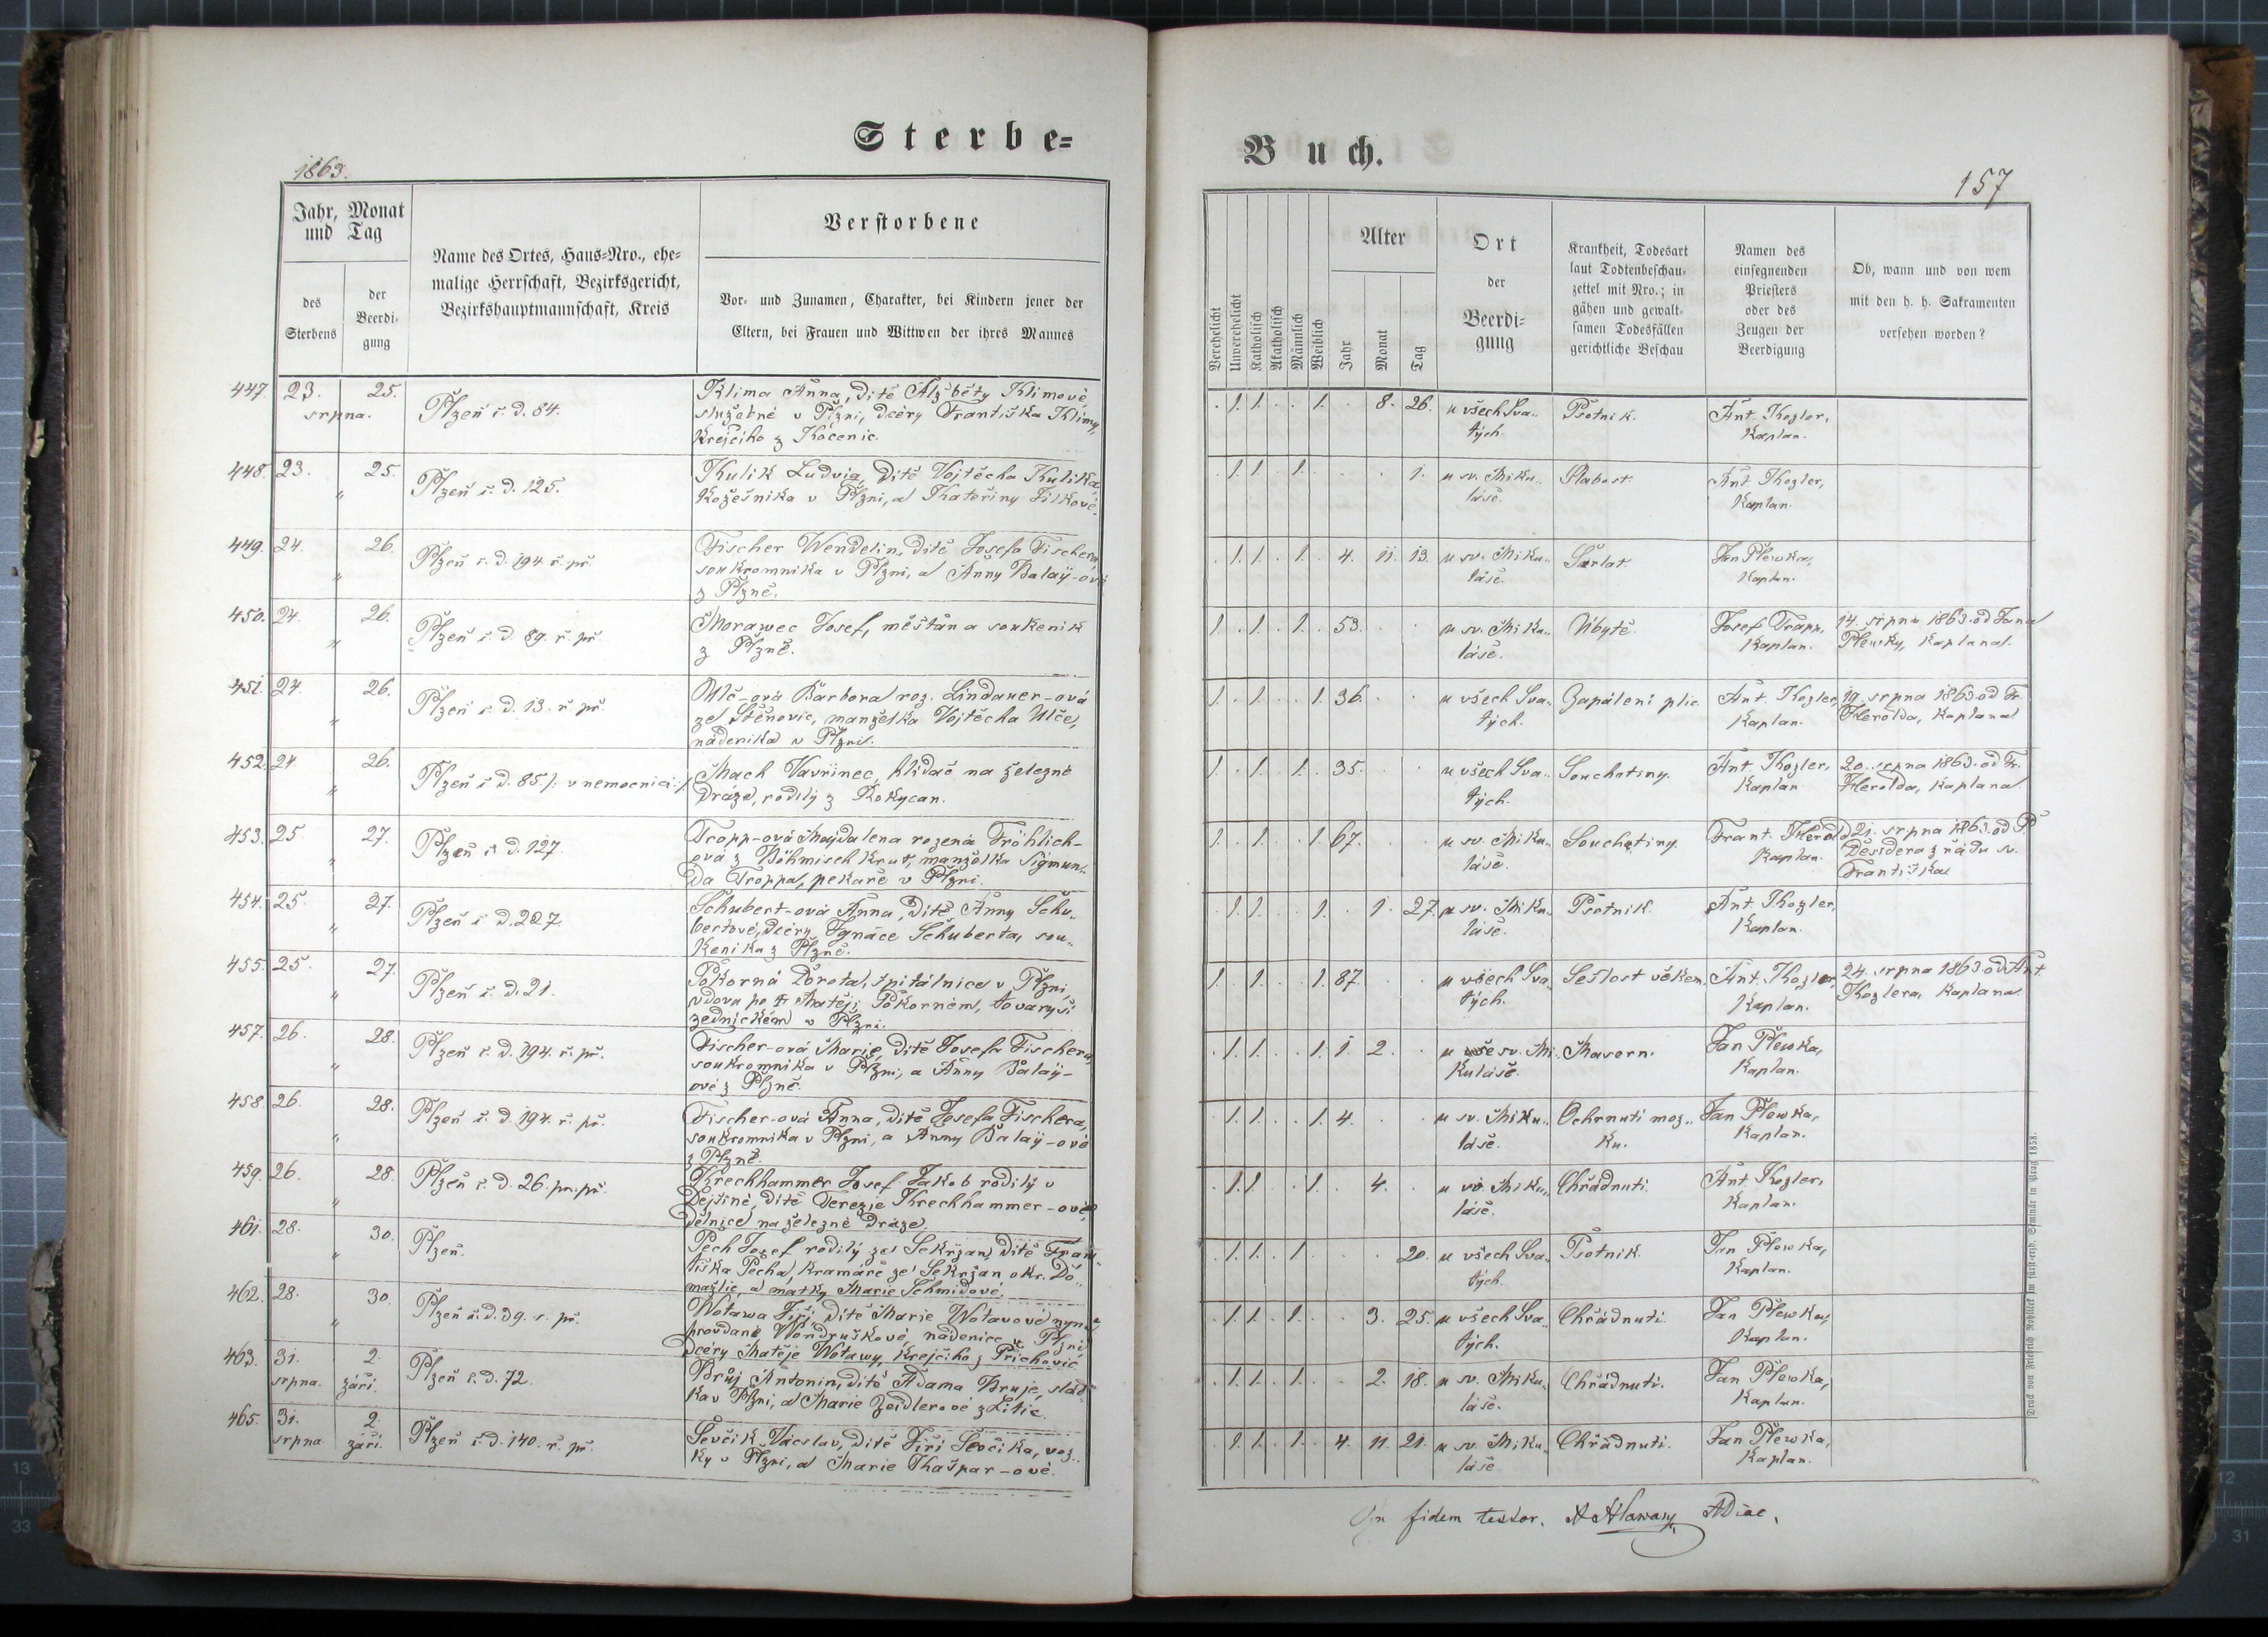 Sterbe=
1863.
Jahr, Monat
und Tag
des
Sterbens
der
Beerdi-
gung
Name des Ortes, Haus=Nro., ehe=
malige Herrschaft, Bezirksgericht,
Bezirkshauptmannschaft, Kreis
Verstorbene
Vor- und Zunamen, Charakter, bei Kindern jener der
Eltern, bei Frauen und Wittwen der ihres Mannes
447. 23. 25. Plzeň č. d. 84. Klima Anna, dítě Alžběty Klimové,
srpna. služebné v Plzni, dcéry Františka Klimy,
krejčího z Kočenic.
448. 23. 25. Plzeň č. d. 125. Kulik Ludvig, dítě Vojtěcha Kulika
„ kožešníka v Plzni, a Kateřiny Jílkové.
449. 24. 26. Plzeň č. d. 194. ř. př. Fischer Wendelin, dítě Josefa Fischera,
„ soukromníka v Plzni, a Anny Balaÿ-ové
z Plzně.
450. 24. 26. Plzeň č. d. 89. ř. př. Morawec Josef, měštan a soukeník
„ z Plzně.
451. 24. 26. Plzeň č. d. 13. ř. př. Ulč-ová Barbora roz. Lindauer-ová
„ ze Štěnovic, manželka Vojtěcha Ulče,
nádeníka v Plzni.
452. 24. 26. Plzeň č. d. 85 /: v nemocnici :/ Mach Vavřinec, hlídač na železné
„ dráze, rodilý z Rokycan.
453. 25. 27. Plzeň č. d. 127. Tropp-ová Majdalena rozená Fröhlich-
„ ová z Böhmisch Krut, manželka Sigmun-
da Troppa, pekaře v Plzni.
454. 25. 27. Plzeň č. d. 227. Schubert-ová Anna, dítě Anny Schu-
„ bertové, dcéry Ignáce Schuberta, sou-
keníka z Plzně.
455. 25. 27. Plzeň č. d. 21. Pokorná Dorota, špitálnice v Plzni,
„ vdova po Matěji Pokorném, tovaryši
zednickém v Plzni.
457. 26. 28. Plzeň č. d. 194. ř. př. Fischer-ová Marie, dítě Josefa Fischera,
„ soukromníka v Plzni, a Anny Balaÿ-
ové z Plzně.
458. 26. 28. Plzeň č. d. 194. ř. př. Fischer-ová Anna, dítě Josefa Fischera,
„ soukromníka v Plzni, a Anny Balaÿ-ové
z Plzně.
459. 26. 28. Plzeň č. d. 26. pr. př. Krechhammer Josef Jakob rodilý v
„ Dejšíně, dítě Terezie Krechhammer-ové,
dělnice na železné dráze.
461. 28. 30. Plzeň. Pech Josef rodilý ze Sekržan, dítě Fran-
„ tiška Pecha, kramáře ze Sekržan, okr. Do-
mažlic, a matky Marie Schmidové.
462. 28. 30. Plzeň č. d. 39. ř. př. Wotawa Jiří, dítě Marie Wotavové nyní
„ provdané Wondruškové, nádenice v Plzni
dcéry Matěje Wotawy, krejčího z Přichovic
463. 31. 2. Plzeň č. d. 72. Bruj Antonin, dítě Adama Bruje, slád-
srpna. září. ka v Plzni, a Marie Zeidlerové z Litic.
465. 31. 2. Plzeň č. d. 140. ř. př. Ševčík Václav, dítě Jiří Ševčíka, voz-
srpna září. ky v Plzni, a Marie Kašpar-ové.
Buch.
157
Verehelicht
Unverehelicht
Katholisch
Akatholisch
Männlich
Weiblich
Alter
Jahr
Monat
Tag
Ort
der
Beerdi=
gung
Krankheit, Todesart
laut Todtenbeschau-
zettel mit Nro.; in
gähen und gewalt-
samen Todesfällen
gerichtliche Beschau
Namen des
einsegnenden
Priesters
oder des
Zeugen der
Beerdigung
Ob, wann und von wem
mit den h. h. Sakramenten
versehen worden?
. 1. 1. . . 1. . 8. 26. u všech Sva- Psotník. Ant. Kozler,
tých. Kaplan.
. 1. 1. . 1. . . . 1. u sv. Miku- Slabost. Ant. Kozler,
láše. Kaplan.
. 1. 1. . 1. . 4. 11. 13. u sv. Miku- Šarlat. Jan Plewka,
láše. Kaplan.
1. . 1. . 1. . 53. . . u sv. Miku- Úbytě. Josef Trapp, 14. srpna 1863. od Jana
láše. Kaplan. Plewky, kaplana.
1. . 1. . . 1. 36. . . u všech Sva- Zapálení plic. Ant. Kozler, 19. srpna 1863 od Fr.
tých. Kaplan. Herolda, kaplana
1. . 1. . 1. . 35. . . u všech Sva- Souchotiny. Ant. Kozler, 20. srpna 1863. od Fr.
tých. Kaplan Herolda, kaplana
1. . 1. . . 1. 67. . . u sv. Miku- Souchotiny. Frant. Herold 21. srpna 1863. od P.
láše. Kaplan. Desidera z řádu sv.
Františka
. 1. 1. . . 1. . 1. 27. u sv. Miku- Psotník. Ant. Kozler,
láše. Kaplan.
1. . 1. . . 1. 87. . . u všech Sva- Sešlost věkem. Ant. Kozler, 24. srpna 1863. od Ant.
tých. Kaplan. Kozlera, kaplana
. 1. 1. . . 1. 1. 2. . u sv. Mi- Masern. Jan Plewka,
kuláše. Kaplan.
. 1. 1. . . 1. 4. . . u sv. Miku- Ochrnutí moz- Jan Plewka,
láše. ku. Kaplan.
. 1. 1. . 1. . . 4. . u sv. Miku- Chřádnutí. Ant. Kozler,
láše. Kaplan.
. 1. 1. . 1. . . . 20. u všech Sva- Psotník. Jan Plewka,
tých. Kaplan.
. 1. 1. . 1. . . 3. 25. u všech Sva- Chřádnutí. Jan Plewka,
tých. Kaplan.
. 1. 1. . 1. . . 2. 18. u sv. Miku- Chřádnutí. Jan Plewka,
láše. Kaplan.
. 1. 1. . 1. . 4. 11. 21. u sv. Miku- Chřádnutí. Jan Plewka,
láše Kaplan.
In fidem testor.
Druck von Friedrich Rohliček im fürst-erzb. Seminär in Prag 1858.